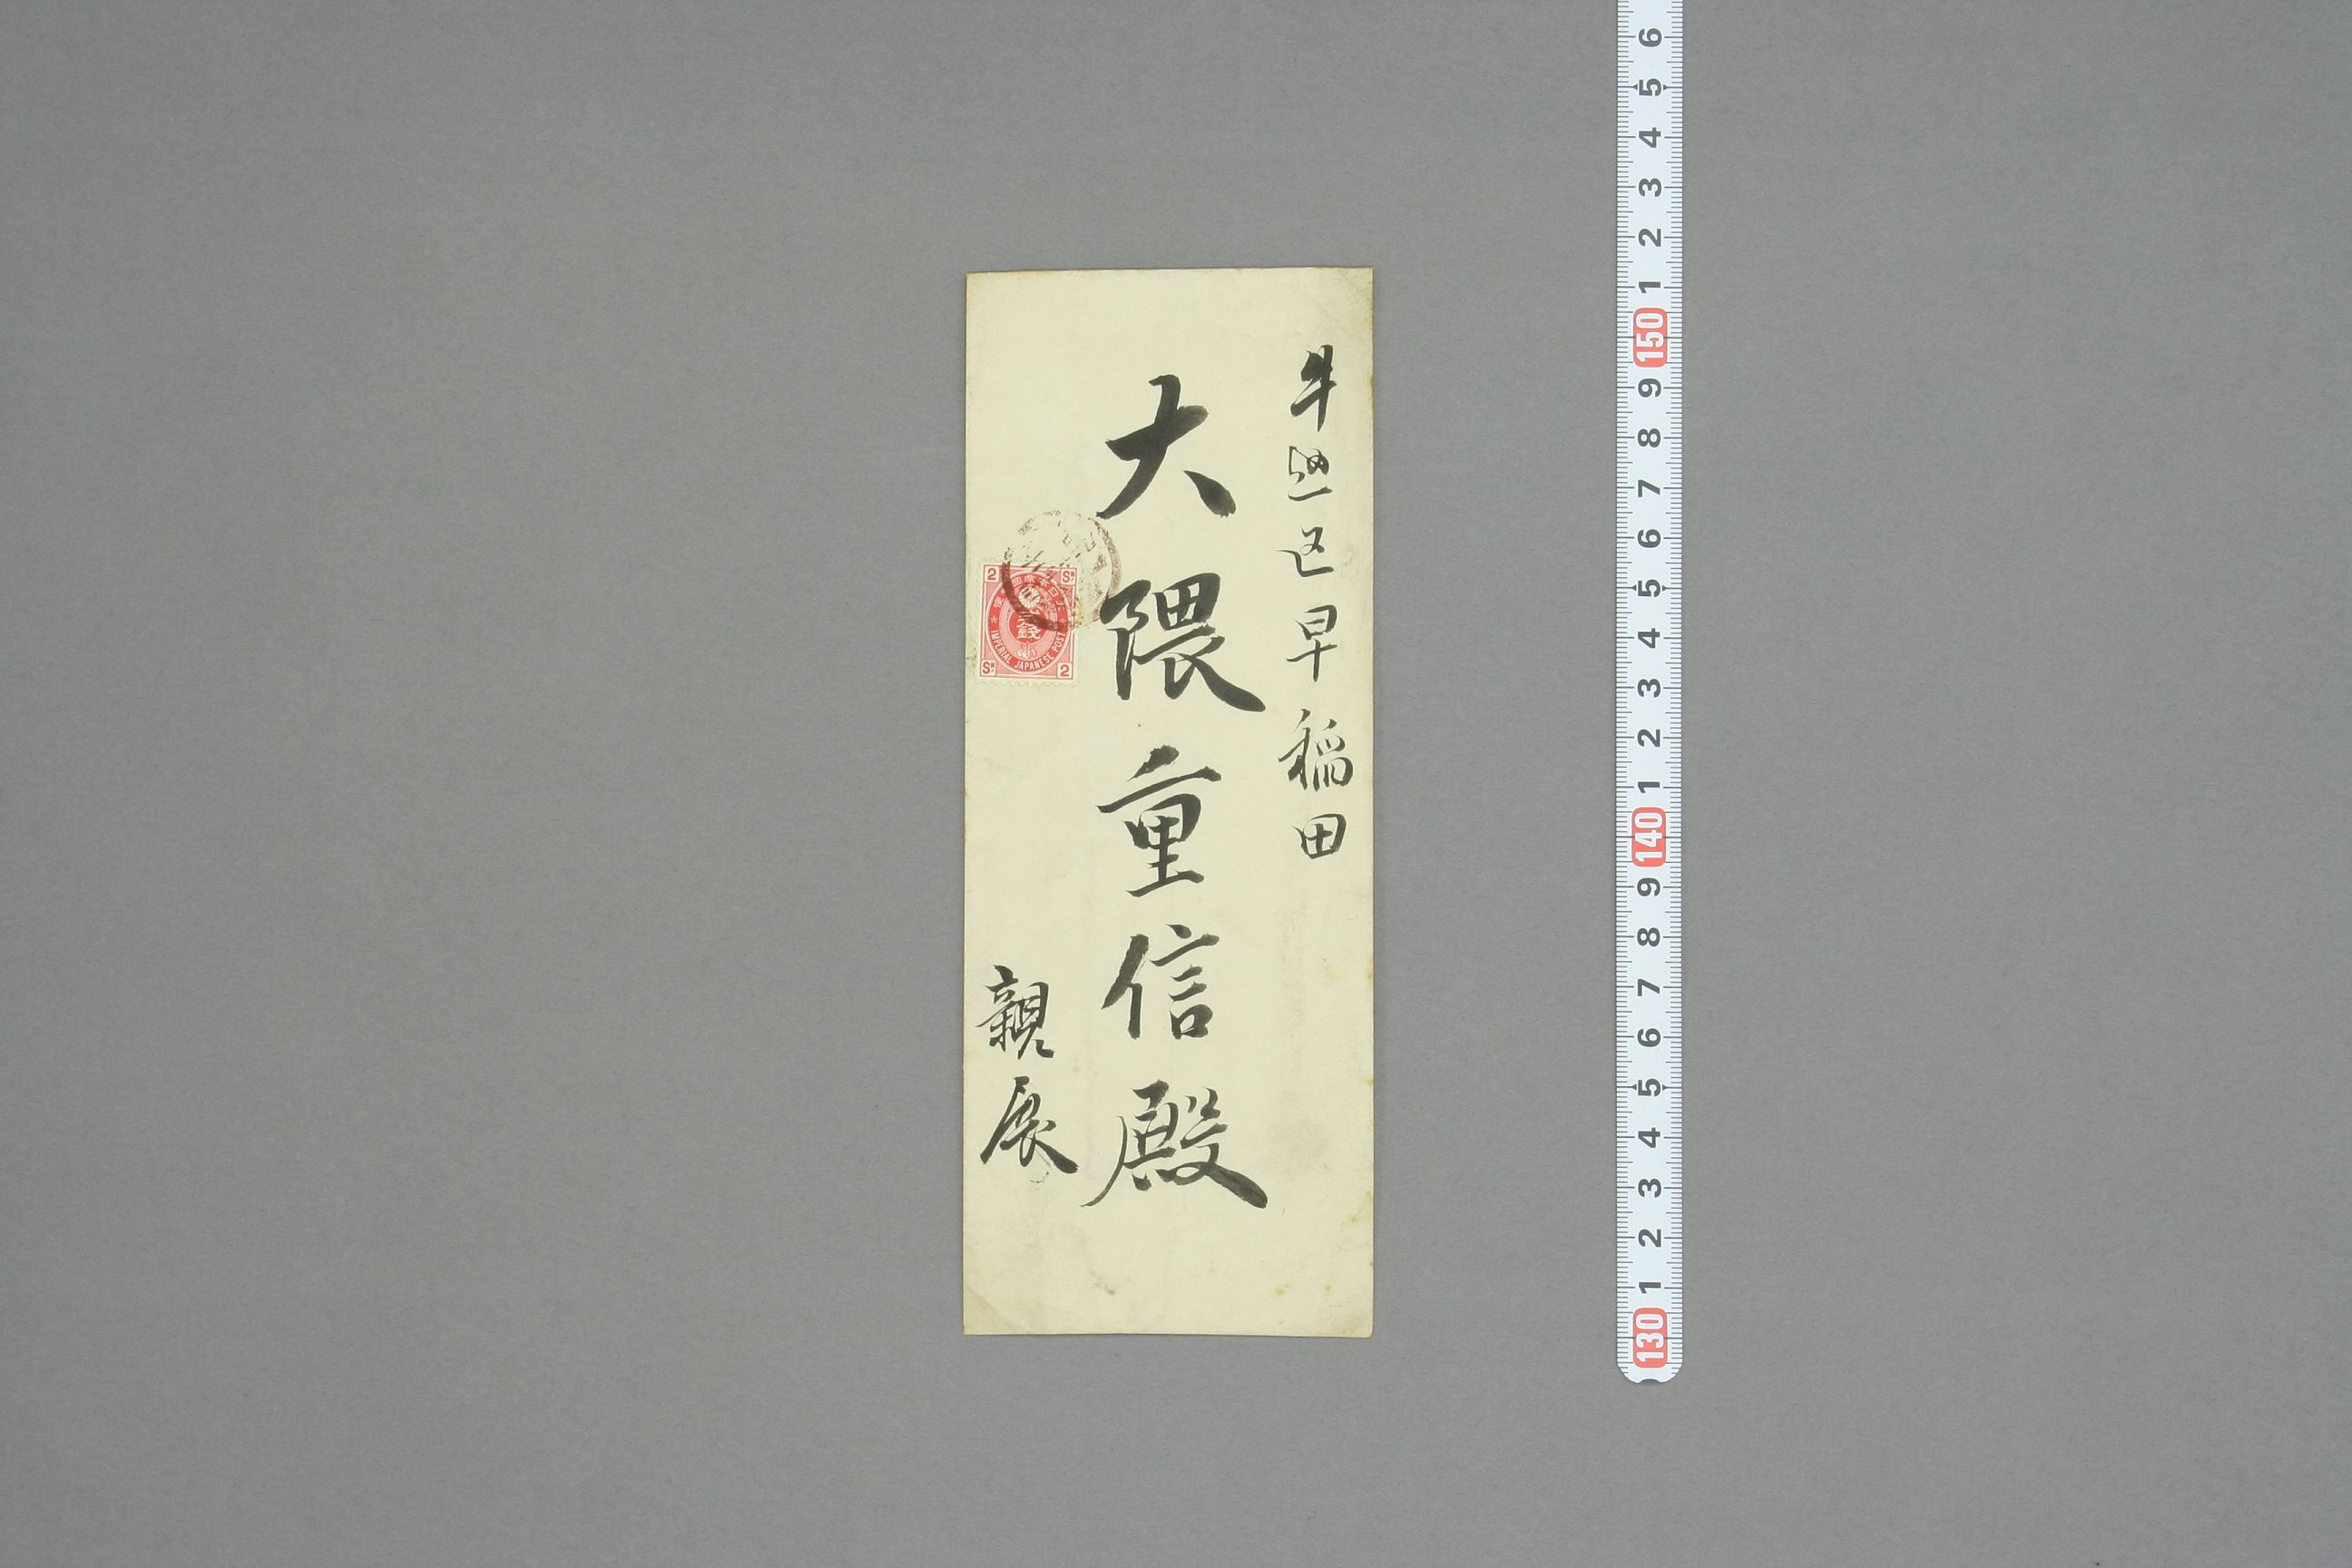 牛込区早稲田
大隈重信殿
親展
大日本帝国郵便
貳銭
2 Sn
IMPERIAL JAPANESE POST
Sn 2
6
5
4
3
2
1
150
9
8
7
6
5
4
3
2
1
140
9
8
7
6
5
4
3
2
1
130